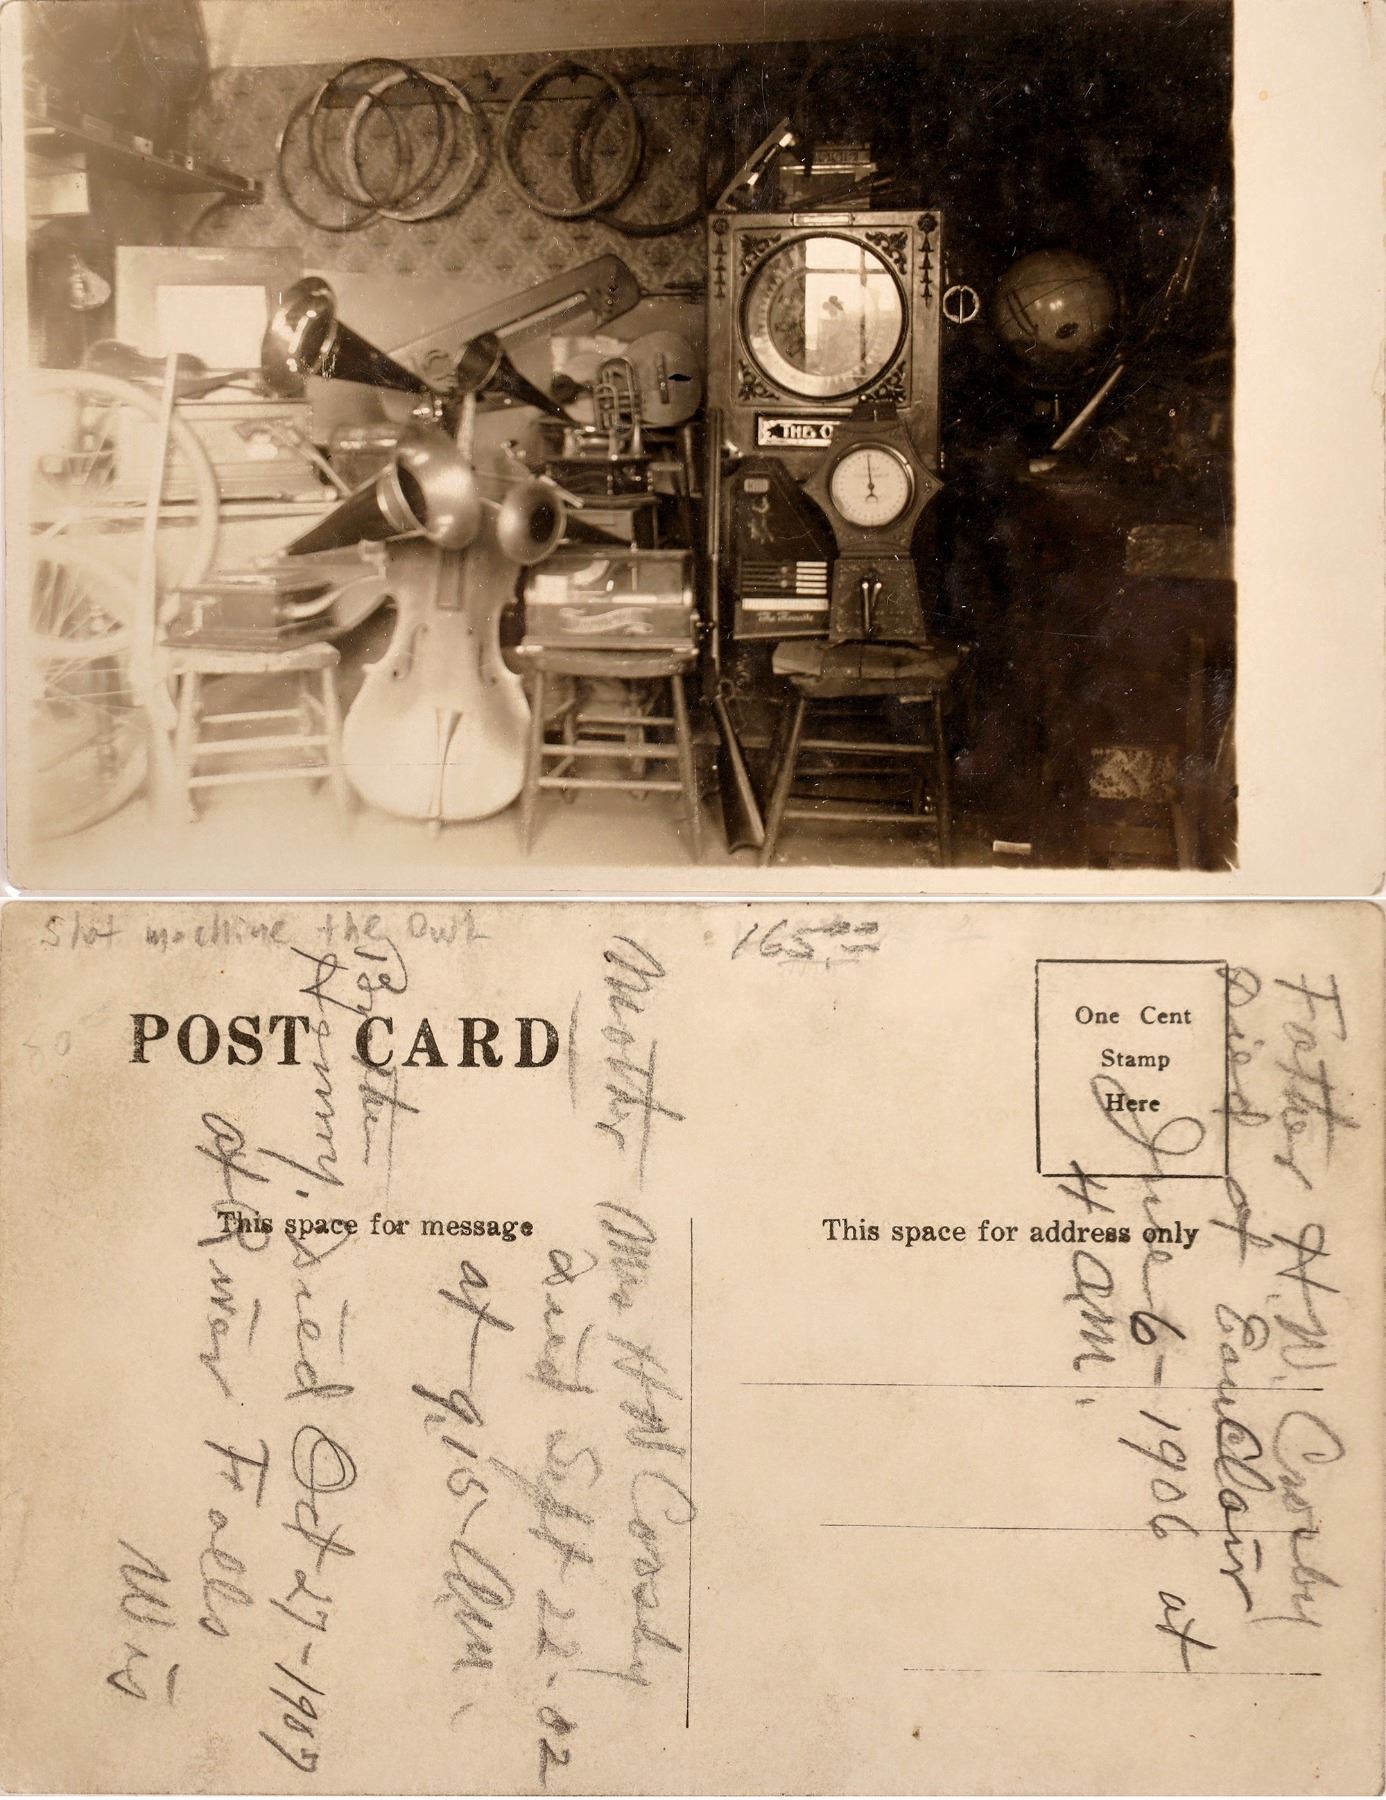 THE O
Slot machine the Owl
165.00
POST CARD
One Cent
Stamp
Here
This space for message
This space for address only
Father H.W. Crosby
Died at Eau Clair
June 6-1906 at
4 am.
Mother Mrs H W Crosby
died Sept 22-02
at 9,15 Am.
Brother
Hanny. died Oct 27-1907
at River Falls
Wis